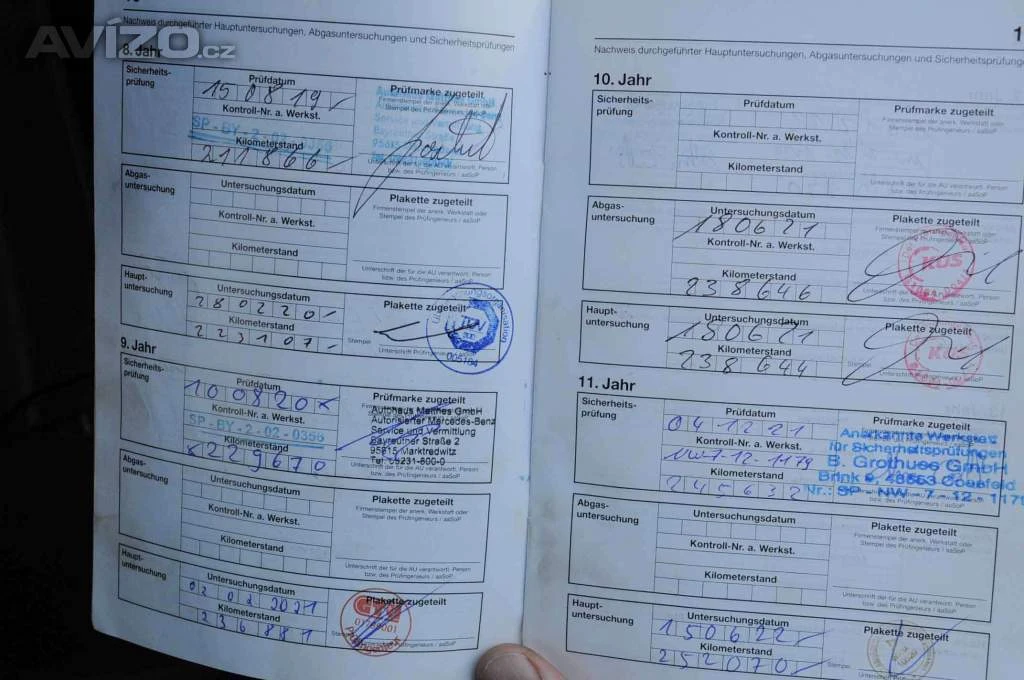 AVÍZO.cz
Nachweis durchgeführter Hauptuntersuchungen, Abgasuntersuchungen und Sicherheitsprüfungen
8. Jahr
Sicherheits-
prüfung
Prüfdatum
150819
Kontroll-Nr. a. Werkst.
SP-BY-2-02-0356
Kilometerstand
211866
Prüfmarke zugeteilt
Firmenstempel der anerk. Werkstatt oder
Unterschrift der für die AU verantwort. Person
Abgas-
untersuchung
Untersuchungsdatum
Kontroll-Nr. a. Werkst.
Kilometerstand
Plakette zugeteilt
Firmenstempel der anerk. Werkstatt oder
Stempel des Prüfingenieurs / aaSoP
Unterschrift der für die AU verantwort. Person
bzw. des Prüfingenieurs / aaSoP
Haupt-
untersuchung
Untersuchungsdatum
280220
Kilometerstand
223107
Plakette zugeteilt
Stempel
9. Jahr
Sicherheits-
prüfung
Prüfdatum
100820
Kontroll-Nr. a. Werkst.
SP-BY-2-02-0356
Kilometerstand
229670
Prüfmarke zugeteilt
Autorisierter Mercedes-Benz
Service und Vermittlung
Bayreuther Straße 2
95615 Marktredwitz
Abgas-
untersuchung
Untersuchungsdatum
Kontroll-Nr. a. Werkst.
Kilometerstand
Plakette zugeteilt
Firmenstempel der anerk. Werkstatt oder
Stempel des Prüfingenieurs / aaSoP
Unterschrift der für die AU verantwort. Person
bzw. des Prüfingenieurs / aaSoP
Haupt-
untersuchung
Untersuchungsdatum
02022021
Kilometerstand
236881
Plakette zugeteilt
Nachweis durchgeführter Hauptuntersuchungen, Abgasuntersuchungen und Sicherheitsprüfungen
10. Jahr
Sicherheits-
prüfung
Prüfdatum
Kontroll-Nr. a. Werkst.
Kilometerstand
Prüfmarke zugeteilt
Firmenstempel der anerk. Werkstatt oder
Stempel des Prüfingenieurs / aaSoP
Unterschrift der für die AU verantwort. Person
bzw. des Prüfingenieurs / aaSoP
Abgas-
untersuchung
Untersuchungsdatum
180621
Kontroll-Nr. a. Werkst.
Kilometerstand
238646
Plakette zugeteilt
KÜS
Haupt-
untersuchung
Untersuchungsdatum
150621
Kilometerstand
238644
Plakette zugeteilt
KÜS
11. Jahr
Sicherheits-
prüfung
Prüfdatum
041221
Kontroll-Nr. a. Werkst.
NW-7-12-1179
Kilometerstand
245632
Prüfmarke zugeteilt
Anerkannte Werkstatt
für Sicherheitsprüfungen
B. Grothues GmbH
Nr.: SP - NW - 7 - 12 - 117
Abgas-
untersuchung
Untersuchungsdatum
Kontroll-Nr. a. Werkst.
Kilometerstand
Plakette zugeteilt
Firmenstempel der anerk. Werkstatt oder
Stempel des Prüfingenieurs / aaSoP
Unterschrift der für die AU verantwort. Person
bzw. des Prüfingenieurs / aaSoP
Haupt-
untersuchung
Untersuchungsdatum
150622
Kilometerstand
252070
Plakette zugeteilt
Stempel